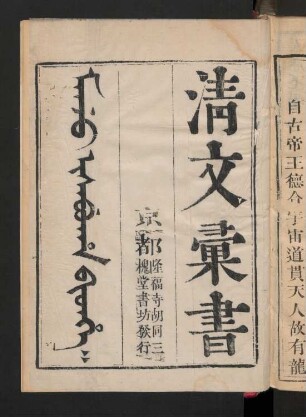 自古帝王德合宇宙道貫天人故有龍
清文彙書
京都
隆福寺胡同三
槐堂書坊發行
ᠮᠠᠨᠵᡠ ᡳᠰᠠᠪᡠᡥᠠ ᠪᡳᡨᡥᡝ